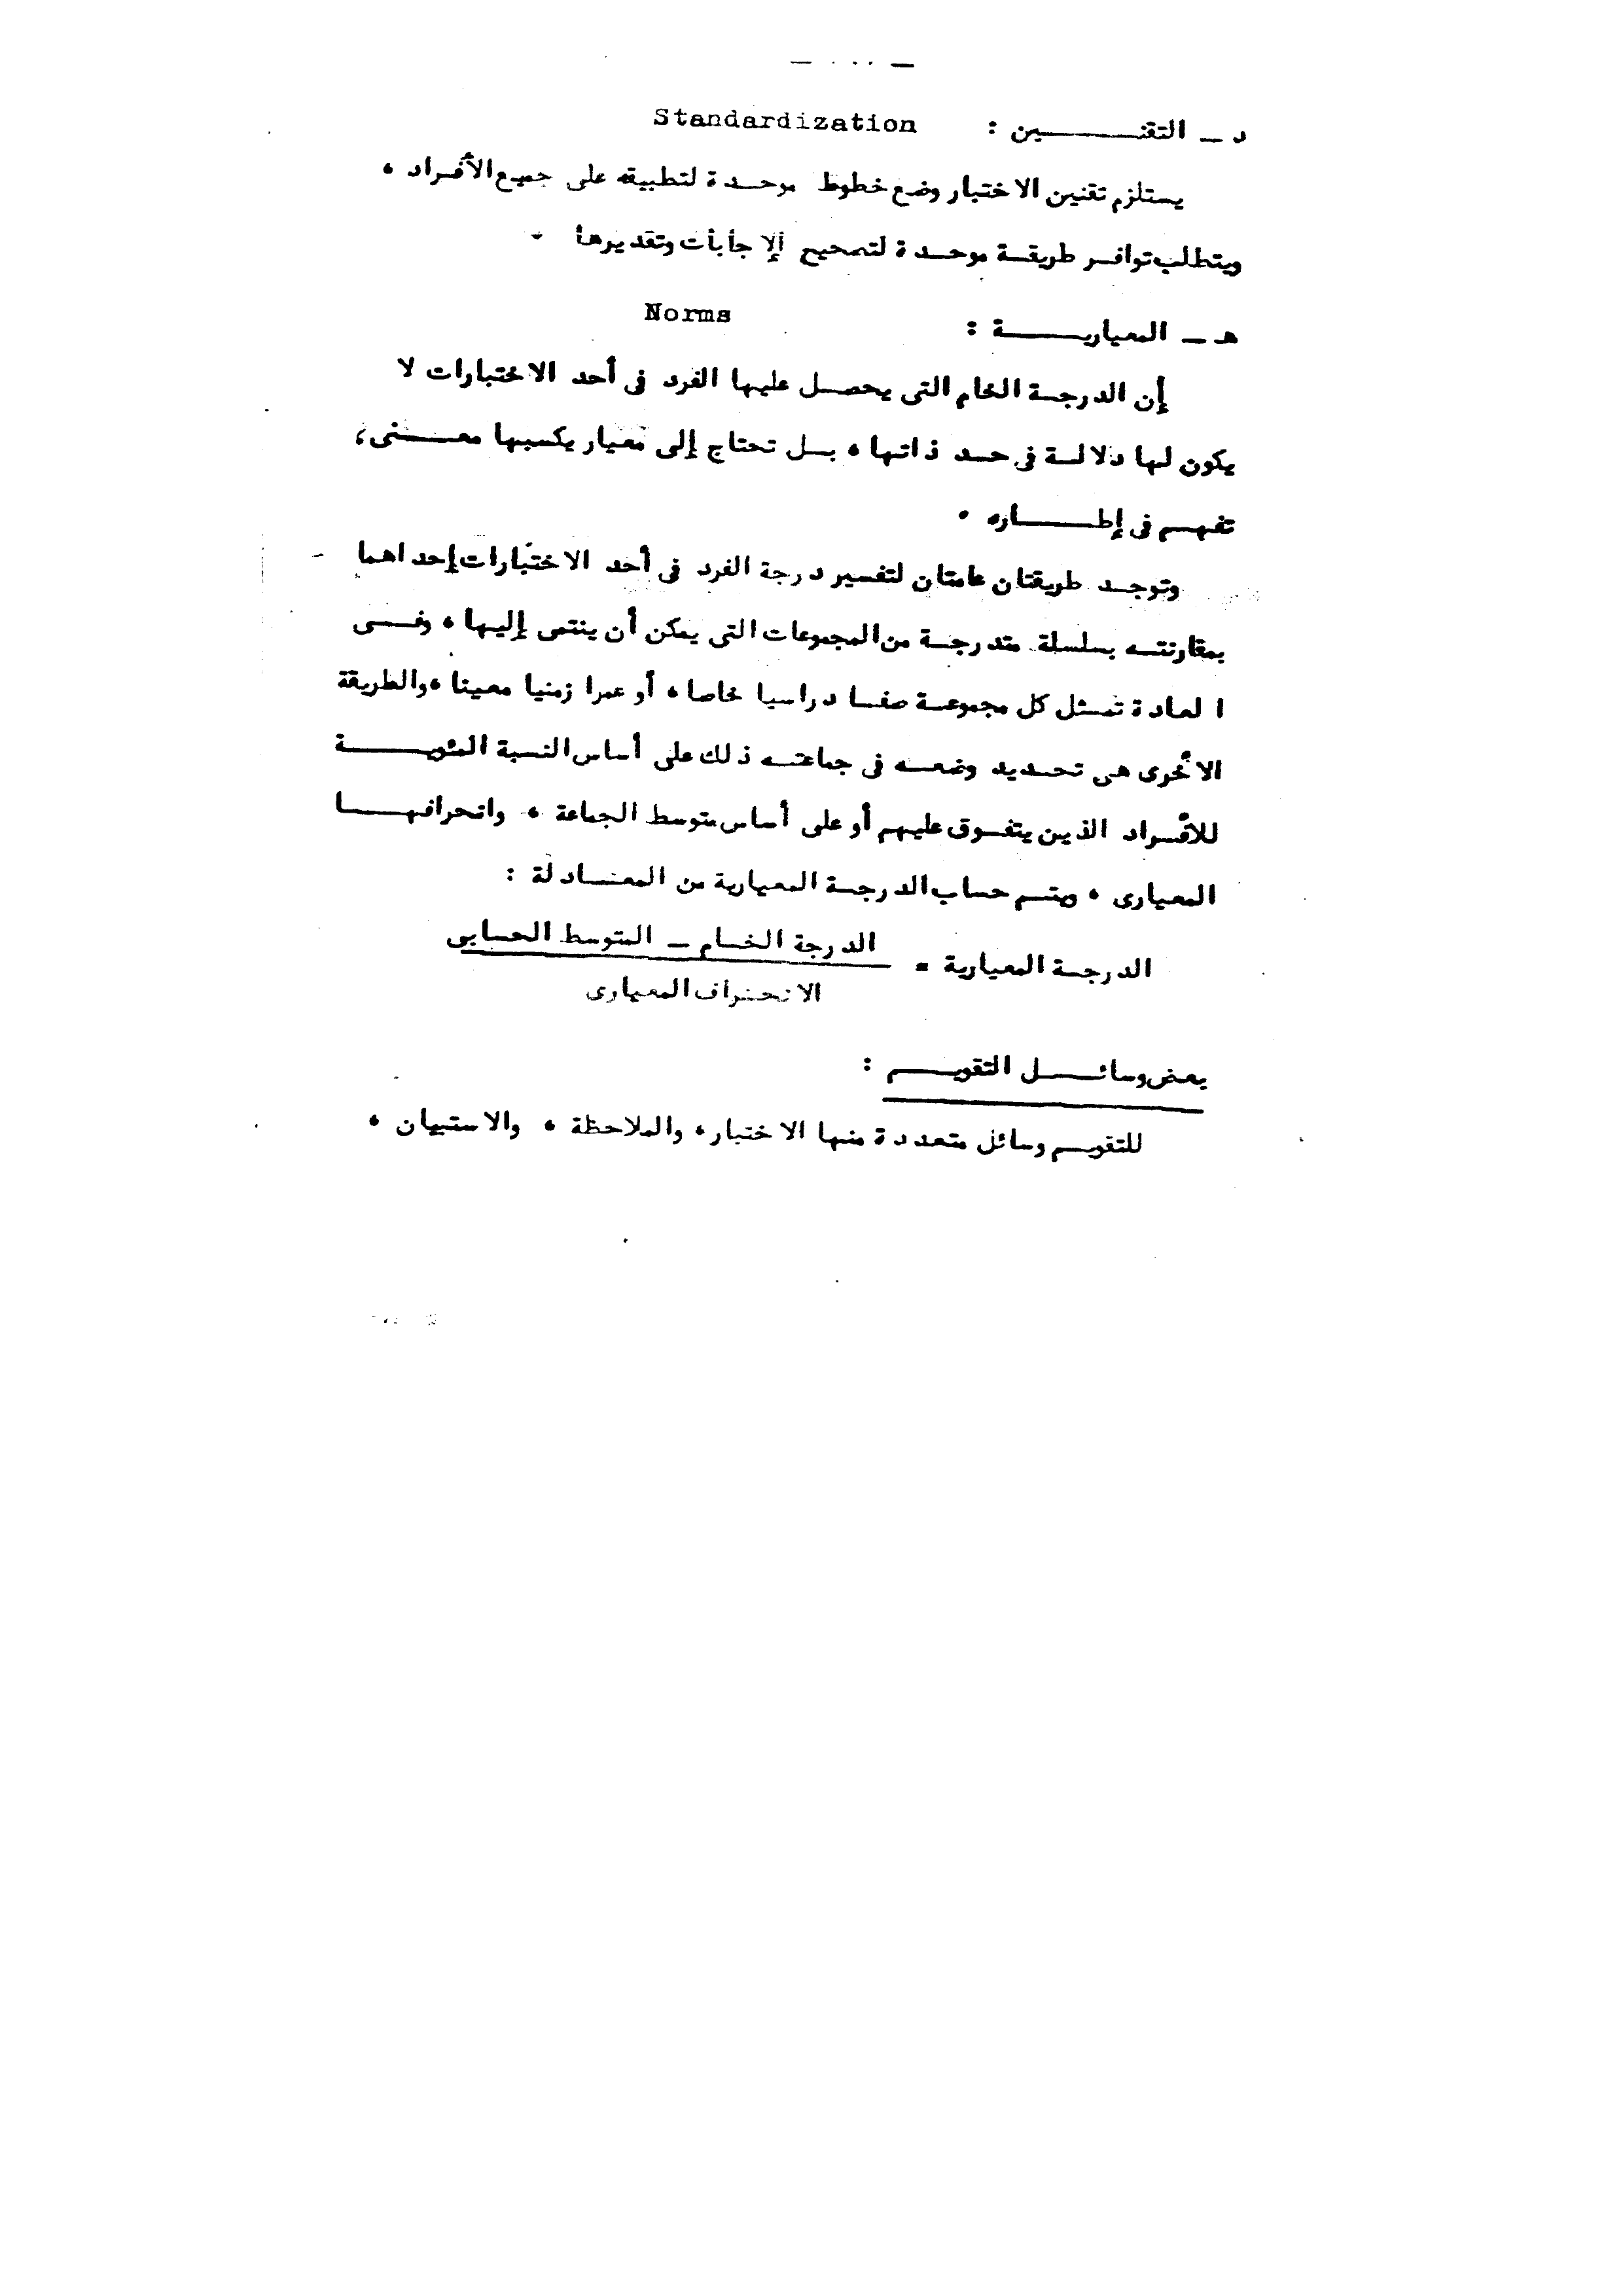 د ـ التقنين : Standardization
يستلزم تقنين الاختبار وضع خطوط موحدة لتطبيقه على جميع الأفراد ،
ويتطلب توافر طريقة موحدة لتصحيح الإجابات وتقديرها ٠
هـ ـ المعيارية : Norms
إن الدرجة الخام التى يحصل عليها الفرد فى أحد الاختبارات لا
يكون لها دلالة فى حد ذاتها ، بل تحتاج إلى معيار يكسبها معنى ،
تفهم فى إطاره ٠
وتوجد طريقتان عامتان لتفسير درجة الفرد فى أحد الاختبارات إحداهما
بمقارنته بسلسلة متدرجة من المجموعات التى يمكن أن ينتمى إليها ، وفى
العادة تمثل كل مجموعة صفا دراسيا خاصا ، أو عمرا زمنيا معينا ، والطريقة
الأخرى هى تحديد وضعه فى جماعته ذلك على أساس النسبة المئوية
للأفراد الذين يتفوق عليهم أو على أساس متوسط الجماعة ، وانحرافها
المعيارى ، ويتم حساب الدرجة المعيارية من المعادلة :
الدرجة المعيارية = الدرجة الخام ـ المتوسط الحسابى
الانحراف المعيارى
بعض وسائل التقويم :
للتقويم وسائل متعددة منها الاختبار ، والملاحظة ، والاستبيان ،